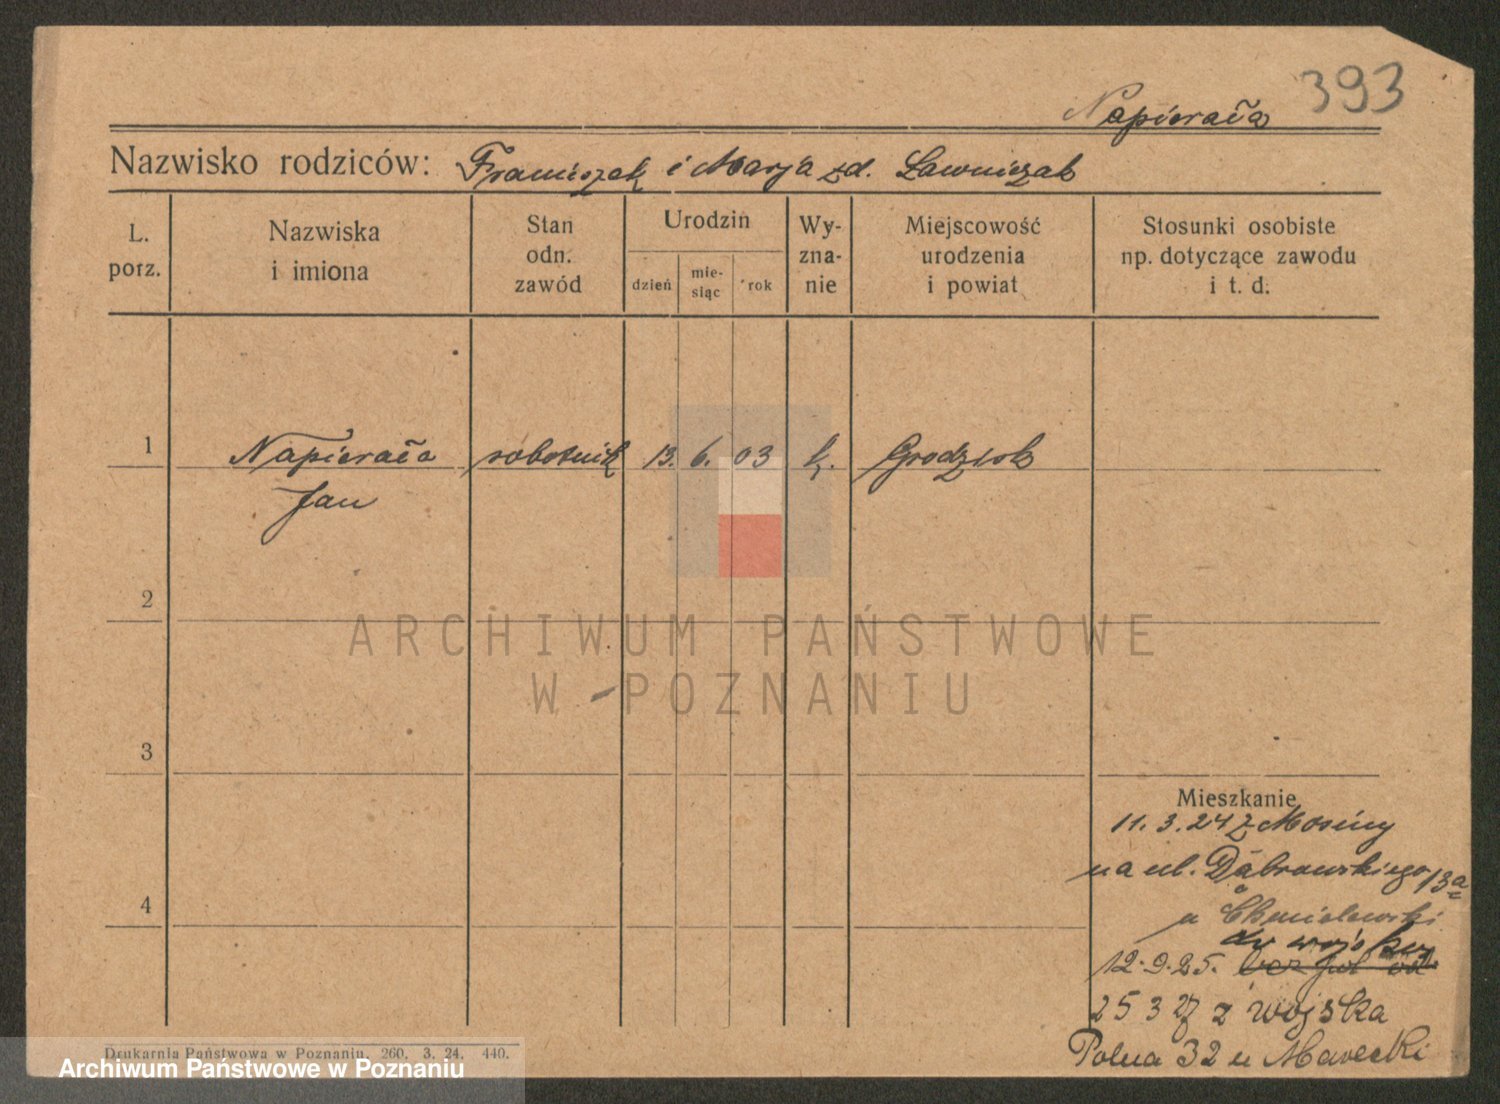 393
Napierała
Nazwisko rodziców: Franciszek i Marja zd. Ławniczak
L. porz.
Nazwiska i imiona
Stan odn. zawód
Urodzin
dzień
mie- siąc
rok
Wy- zna- nie
Miejscowość urodzenia i powiat
Stosunki osobiste np. dotyczące zawodu i t. d.
1 Napierała robotnik 13. 6. 03 k. Grodzisk
Jan
2
ARCHIWUM PAŃSTWOWE
W POZNANIU
3
Mieszkanie
11. 3. 24 z Mosiny
na ul. Dąbrowskiego 13a
4
u Chmielewski
do wojska
12.9.25.
25 3 27 z wojska
Polna 32 u Marecki
Drukarnia Państwowa w Poznaniu, 260. 3. 24. 440.
Archiwum Państwowe w Poznaniu